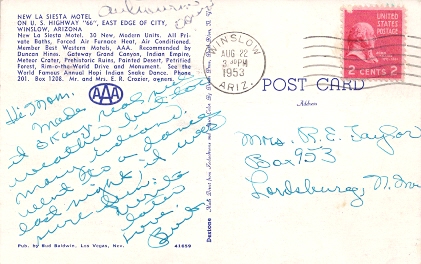 NEW LA SIESTA MOTEL
ON U. S. HIGHWAY "66", EAST EDGE OF CITY,
WINSLOW, ARIZONA
New La Siesta Motel. 30 New, Modern Units. All Pri-
vate Baths, Forced Air Furnace Heat, Air Conditioned.
Member Best Western Motels, AAA. Recommended by
Duncan Hines. Gateway Grand Canyon, Indian Empire,
Meteor Crater, Prehistoric Ruins, Painted Desert, Petrified
Forest, Rim-o-the-World Drive and Monument. See the
World Famous Annual Hopi Indian Snake Dance. Phone
201. Box 1208. Mr. and Mrs. E. R. Crozier, owners.
AAA
Hi Mom:
Made
it okay real nice
weather but
many indians.
went to a dance
last night. it was
sure
later
Love,
Pub. by Bud Baldwin, Las Vegas, Nev.
41059
Dextone
WINSLOW
AUG 22
3 PM
1953
ARIZ.
UNITED STATES
POSTAGE
2 CENTS 2
POST CARD
Address
Mrs. R. E. Taylor
Box 953
Lordsburg, N. Mex